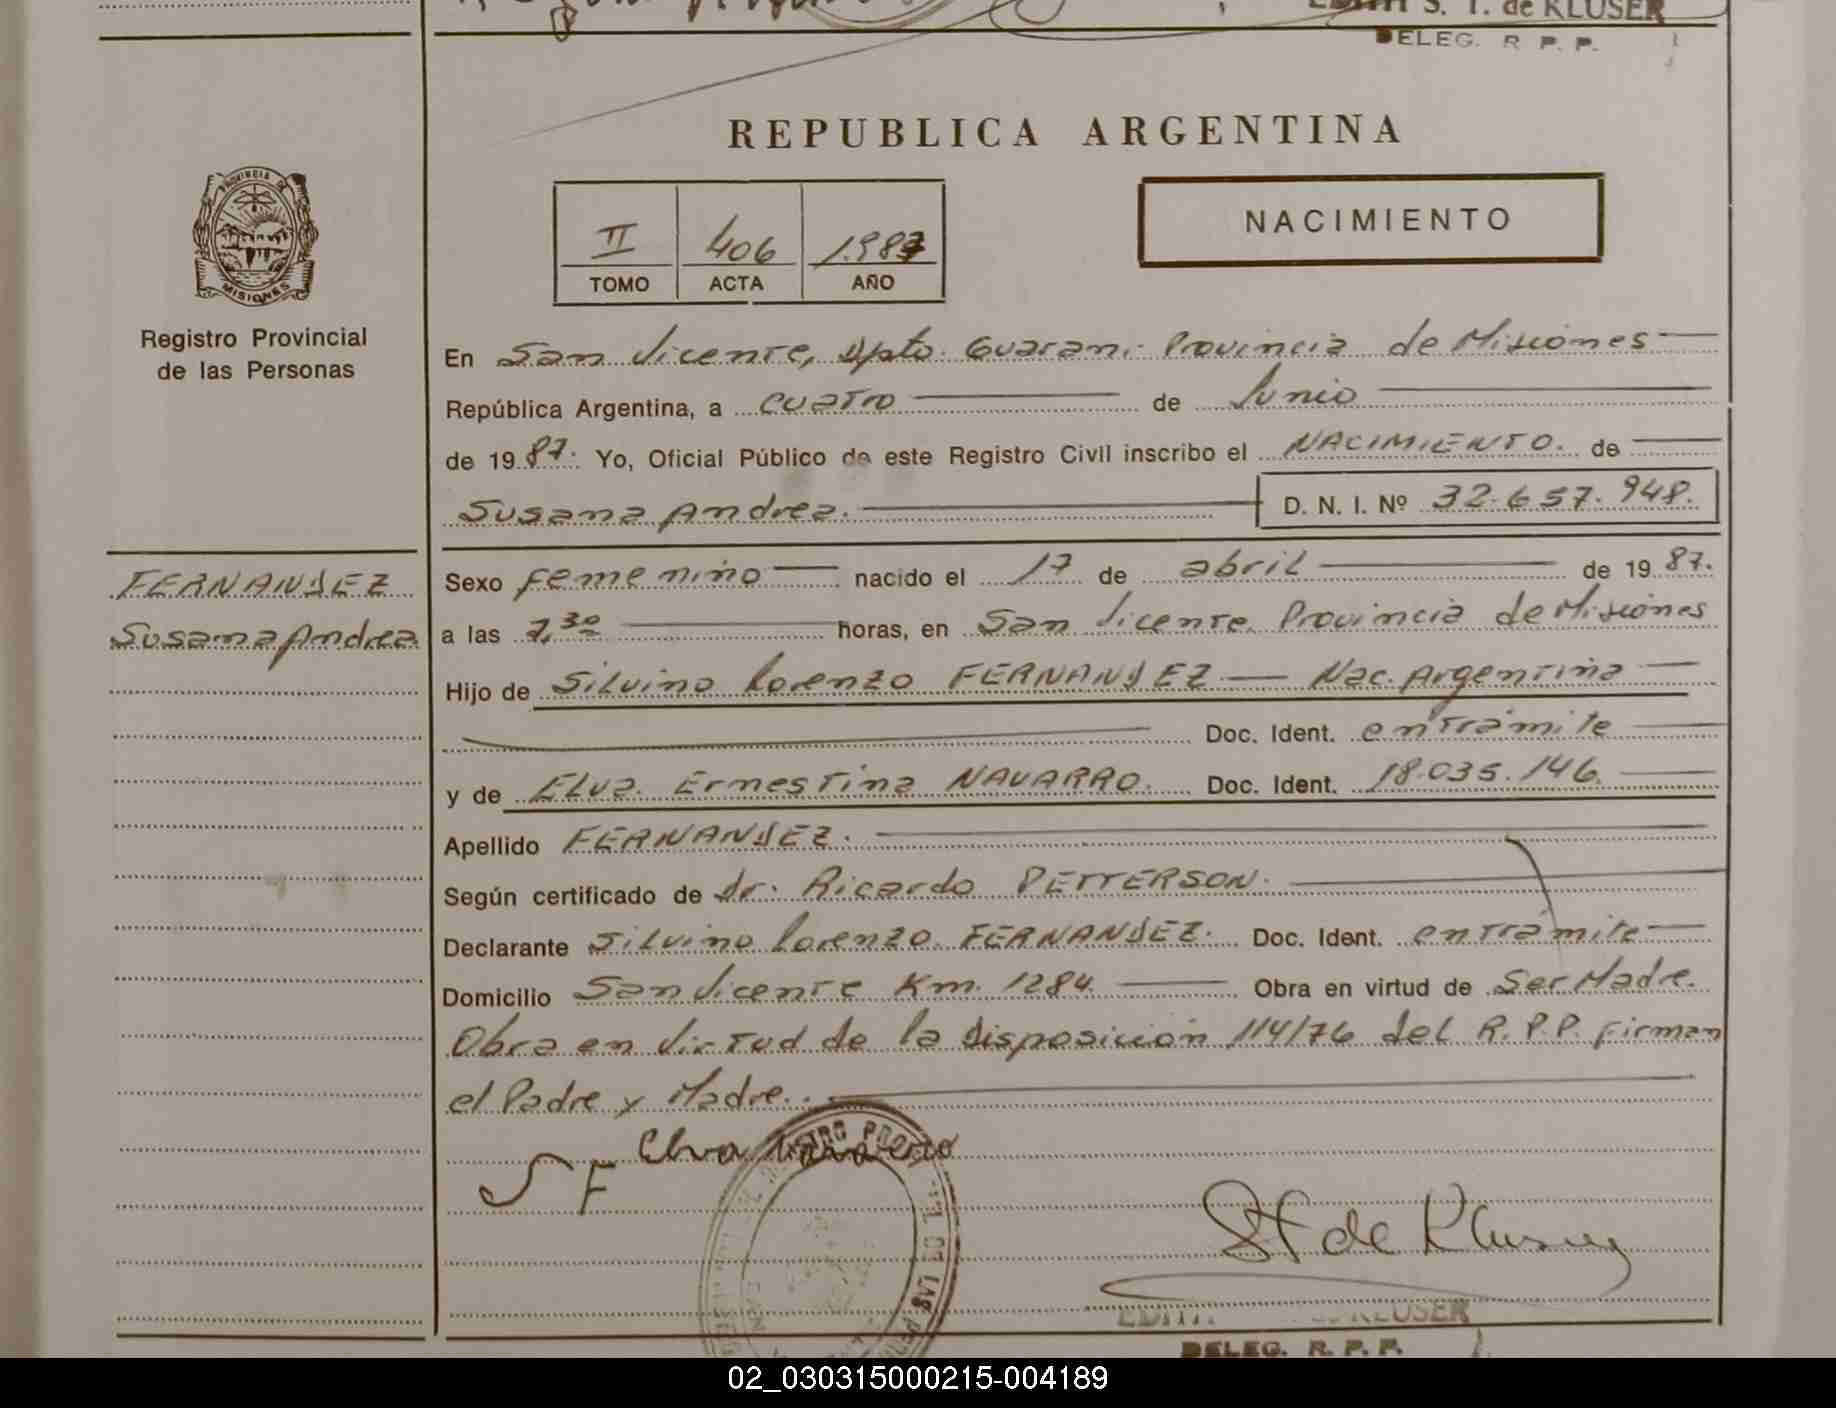 EDITH S. T. de KLUSER
DELEG. R. P. P.
REPUBLICA ARGENTINA
PROVINCIA DE
MISIONES
Registro Provincial
de las Personas
II 406 1.987
TOMO ACTA AÑO
NACIMIENTO
En San Vicente, Dpto. Guarani Provincia de Misiones
República Argentina, a cuatro de Junio
de 1987. Yo, Oficial Público de este Registro Civil inscribo el NACIMIENTO. de
Susana Andrea. D. N. I. Nº 32.657.948.
FERNANDEZ
Susana Andrea
Sexo femenino nacido el 17 de abril de 1987.
a las 7,30 horas, en San Vicente Provincia de Misiones
Hijo de Silvino Lorenzo FERNANDEZ Nac. Argentina
Doc. Ident. en trámite
y de Elva Ernestina NAVARRO. Doc. Ident. 18.035.146.
Apellido FERNANDEZ.
Según certificado de Dr. Ricardo PETTERSON.
Declarante Silvino Lorenzo FERNANDEZ. Doc. Ident. en trámite
Domicilio San Vicente Km. 1284 Obra en virtud de Ser Madre.
Obra en virtud de la disposición 114/76 del R.P.P. firman
el Padre y Madre.
Elva Navarro
S F
St de Kluser
EDITH KLUSER
DELEG. R. P. P.
02_030315000215-004189